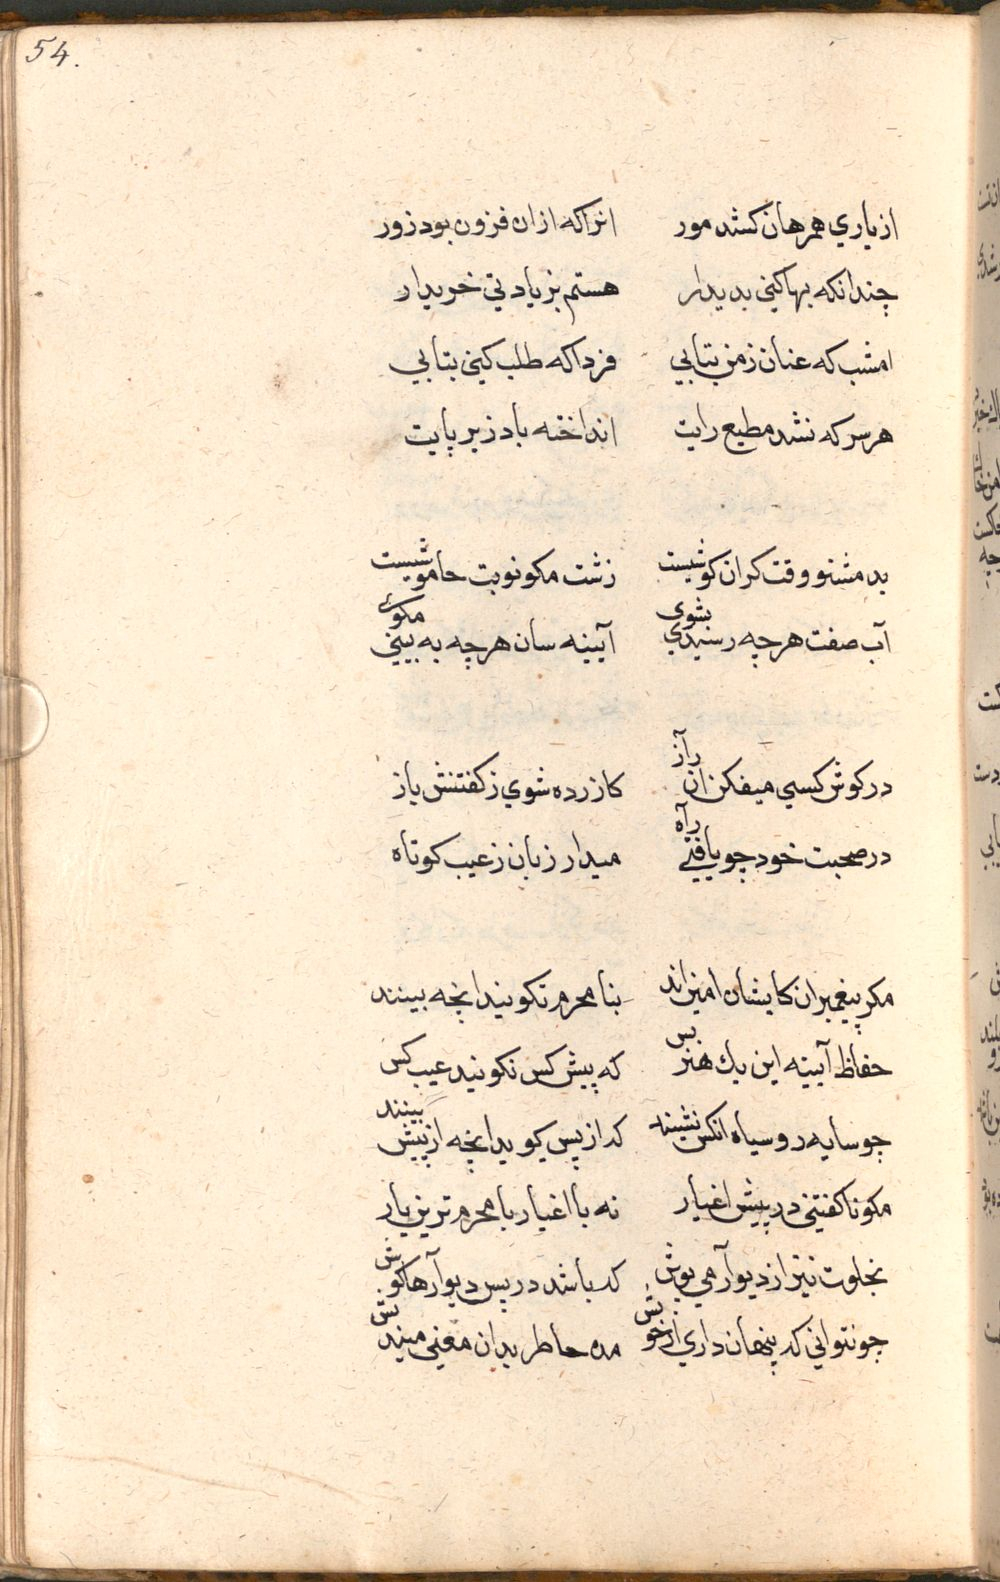 54.
از یاري همرهان کشد مور    انراکه ازان فزون بود زور
چندانکه بهاکنی بدیدار    هستم بزیادتي خریدار
امشب که عنان زمن بتابي    فرداکه طلب کنی بتابي
هرسر که نشد مطیع رایت    انداخته باد زیر پایت
بد مشنو وقت کران کوشیست    زشت مکو نوبت حاموشیست
آب صفت هرچه رسیدي بشوی    آیینه سان هرچه به بیني مکوی
در کوش کسي میفکن ان رآز    کازرده شوي ز کفتنش باز
در صحبت خود چو یافتي رآه    میدار زبان ز عیب کوتاه
مکر پیغمبران کایشان امین اند    بنا محرم نکویند انچه بینند
حفاظ آیینه این یك هنر بس    که پیش کس نکویند عیب کس
چو سایه روسیاه انکس نشیند    که از پس کوید انچه از پیش بینند
مکو ناکفتني در پیش اغیار    نه با اغیار با محرم ترین یار
بخلوت نیز از دیوآر مي پوش    که باشد در پس دیوآرها کوش
چو نتواني که پنهان داري از خویش    مده حاطر بدان معني میندیش